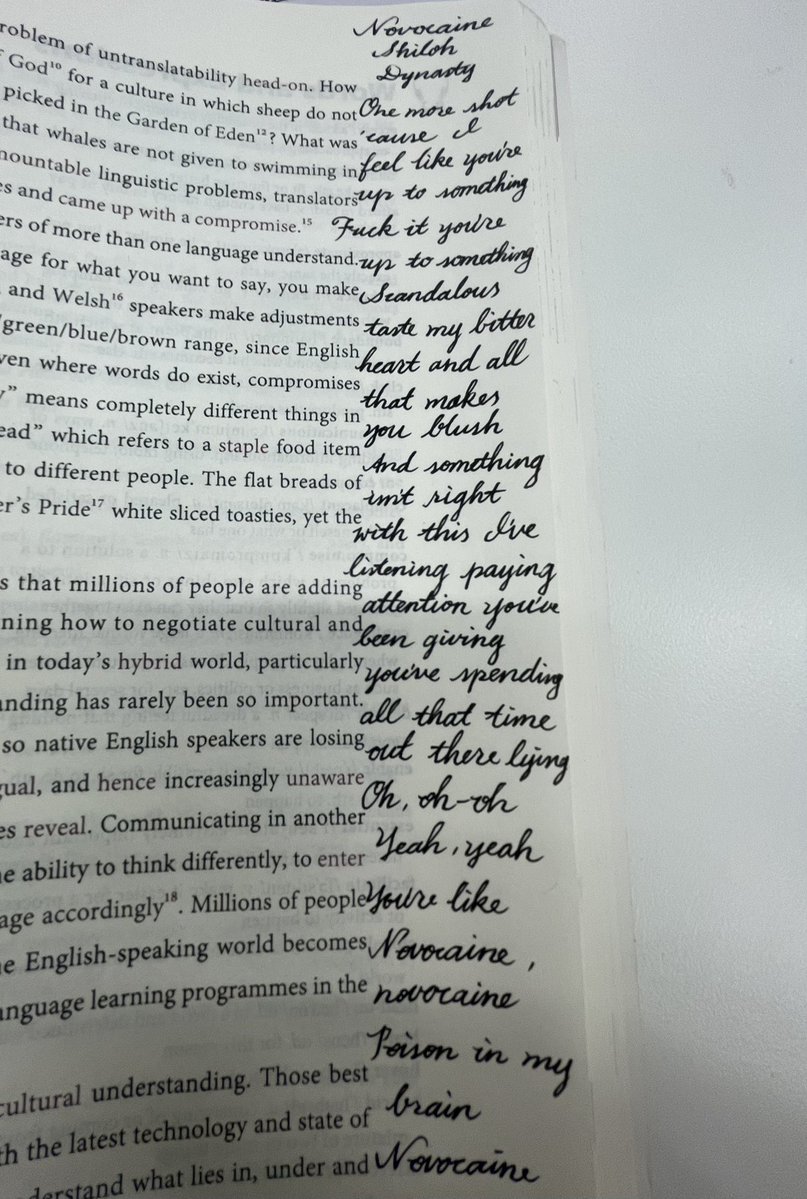 roblem of untranslatability head-on. How
God¹⁰ for a culture in which sheep do not
picked in the Garden of Eden¹²? What was
that whales are not given to swimming in
mountable linguistic problems, translators
es and came up with a compromise.¹⁵
ers of more than one language understand.
age for what you want to say, you make
and Welsh¹⁶ speakers make adjustments
/green/blue/brown range, since English
ven where words do exist, compromises
y” means completely different things in
ead” which refers to a staple food item
to different people. The flat breads of
er’s Pride¹⁷ white sliced toasties, yet the
s that millions of people are adding
ning how to negotiate cultural and
in today’s hybrid world, particularly
anding has rarely been so important.
so native English speakers are losing
gual, and hence increasingly unaware
es reveal. Communicating in another
he ability to think differently, to enter
age accordingly¹⁸. Millions of people
he English-speaking world becomes
anguage learning programmes in the
cultural understanding. Those best
th the latest technology and state of
derstand what lies in, under and
Novocaine
Shiloh
Dynasty
One more shot
'cause I
feel like you're
up to something
Fuck it you're
up to something
Scandalous
taste my bitter
heart and all
that makes
you blush
And something
isn't right
with this I've
listening paying
attention you've
been giving
you've spending
all that time
out there lying
Oh, oh-oh
Yeah, yeah
You're like
Novocaine,
novocaine
Poison in my
brain
Novocaine